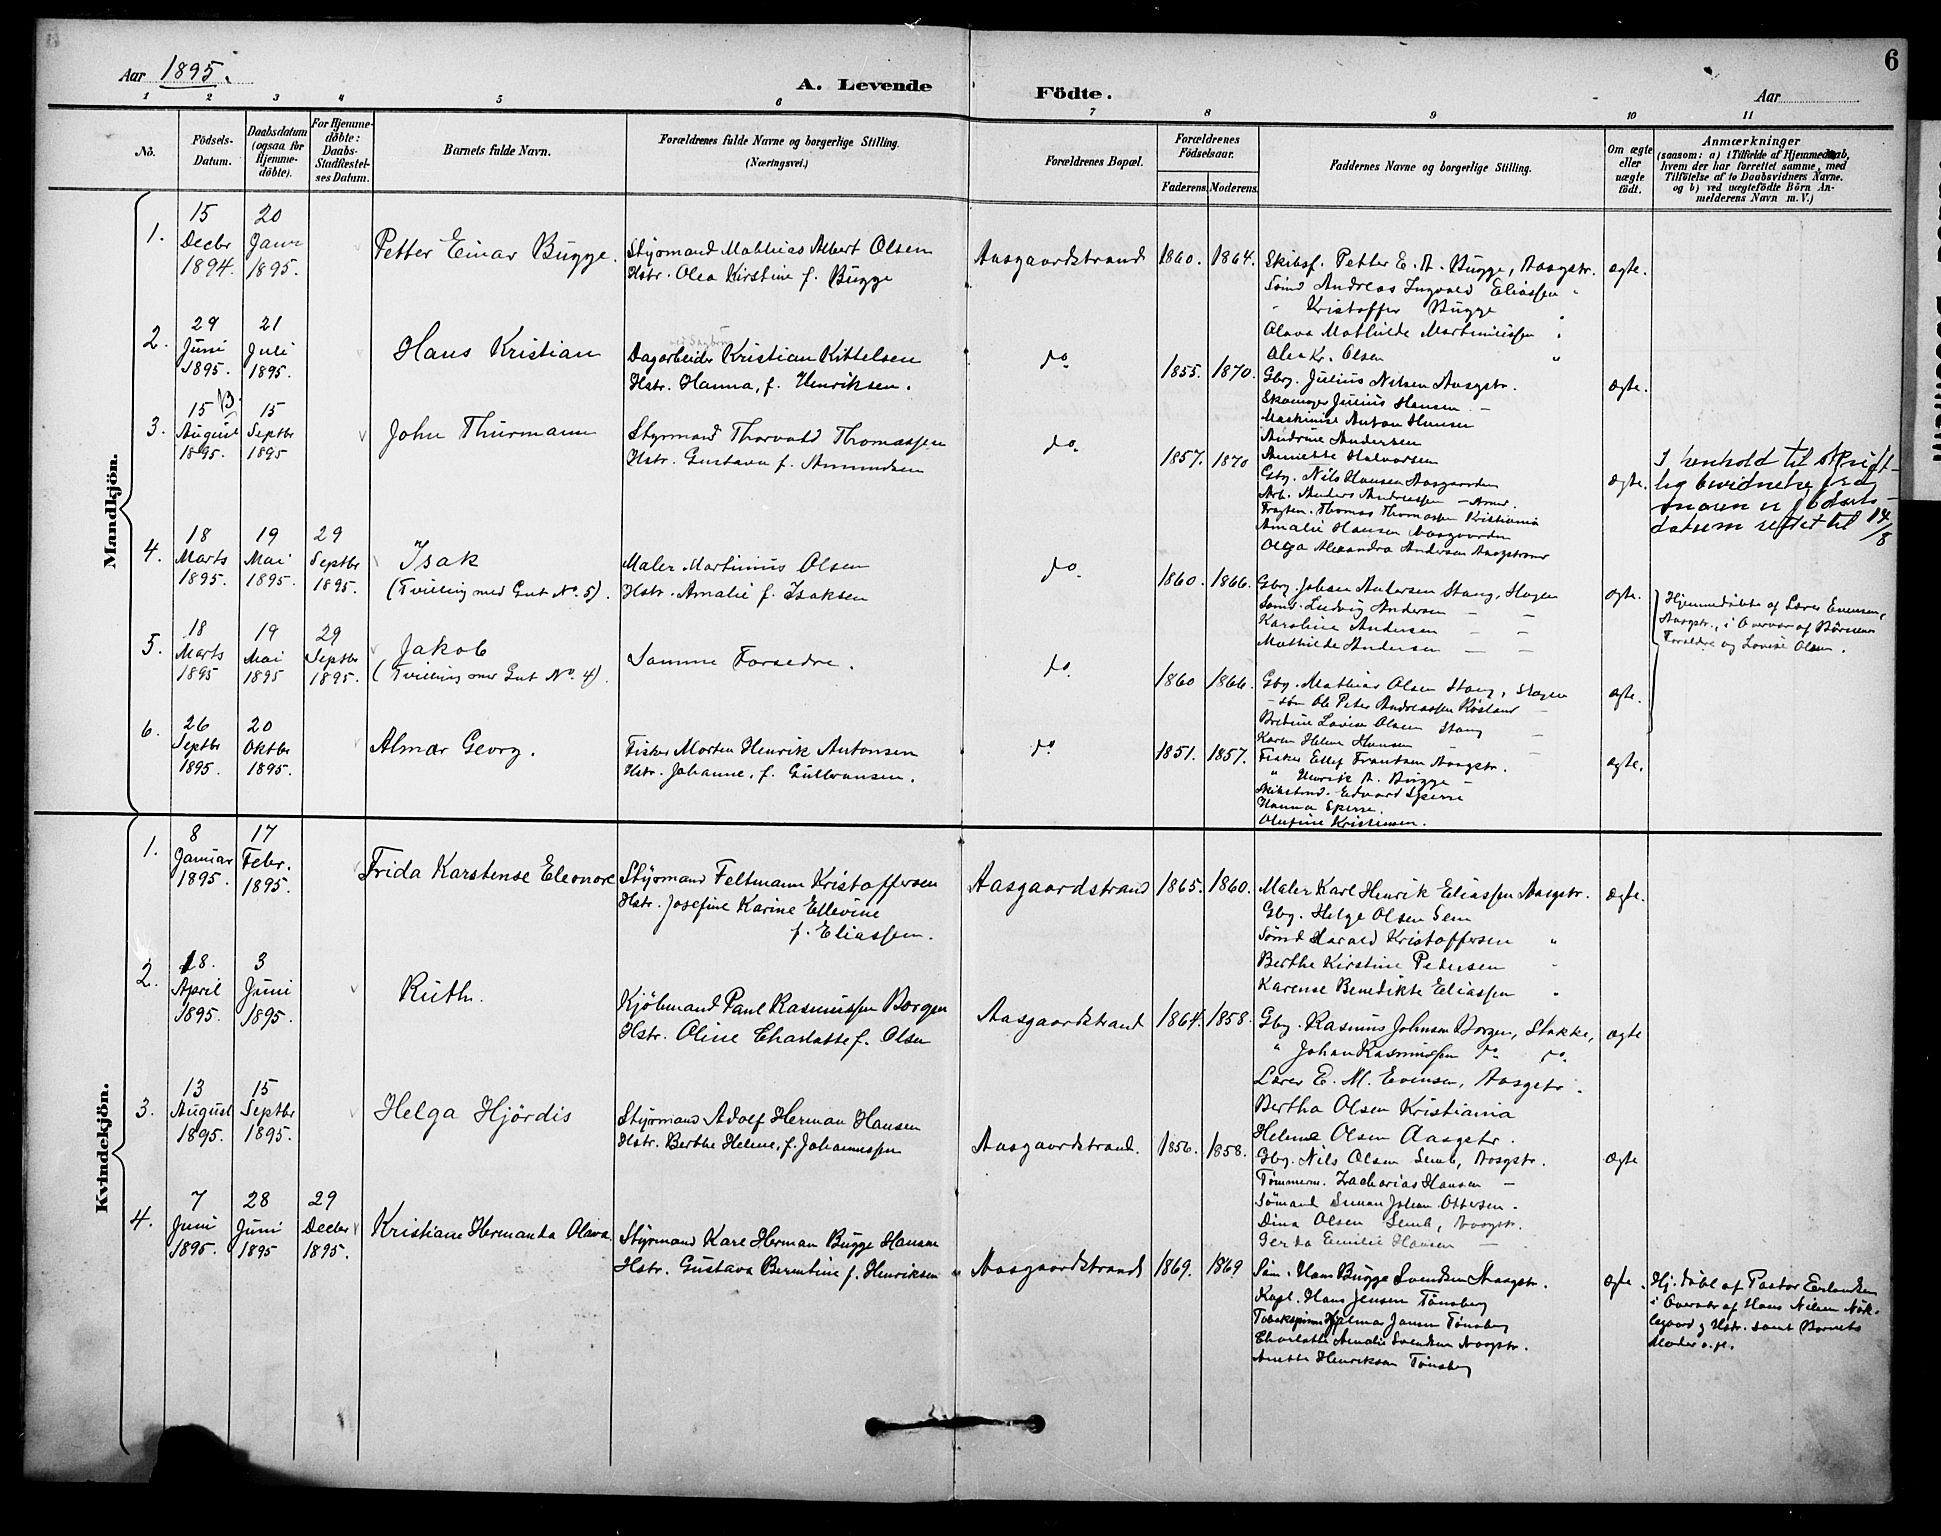 6
Aar 1895.
A. Levende Födte.
Aar
1 2 3 4 5 6 7 8 9 10 11
No.
Födsels-Datum.
Daabsdatum (ogsaa for Hjemme-döbte).
For Hjemme-döbte: Daabs-Stadfæstel-ses Datum.
Barnets fulde Navn.
Forældrenes fulde Navne og borgerlige Stilling.
(Næringsvei.)
Forældrenes Bopæl.
Forældrenes Födselsaar.
Faderens. Moderens.
Faddernes Navne og borgerlige Stilling.
Om ægte eller uægte födt.
Anmærkninger
(saasom: a) i Tilfælde af Hjemmedaab,
hvem der har forrettet samme, med
Tilföielse af to Daabsvidners Navne.
og b) ved uægtefödte Börn An-
melderens Navn m. V.)
Mandkjön.
1.
15 Decbr 1894.
20 Janr 1895.
Petter Einar Bugge.
Styrmand Mathias Albert Olsen
Hstr. Olea Kirstine f. Bugge
Aasgaardstrand
1860. 1864.
Skibsf. Petter E. A. Bugge, Aasgstr.
Sömd Andreas Ingvald Eliassen "
" Kristoffer Bugge "
Olava Mathilde Martiniussen "
Olea Kr. Olsen "
ægte.
2.
29 Juni 1895.
21 Juli 1895.
Hans Kristian
Dagarbeider Kristian Kittelsen
Hstr. Hanna, f. Henriksen.
do.
1855. 1870.
Gbrg. Julius Nilsen Aasgstr.
Skomager Julius Hansen –
Maskinist Anton Hansen
Andrine Andersen
Annette Halvorsen
ægte.
3.
15 August 1895.
15 Septbr 1895
John Thurmann
Styrmand Thorvald Thomassen
Hstr. Gustava f. Amundsen
do.
1857. 1870
Gbrg. Nils Hansen Aasgaarden
Arb. Anders Andreassen –
Thomas Thomassen Kristiania
Amalie Hansen Aasgaarden
Olga Alexandra Andersen Aasgstrand
ægte.
I henhold til skrift-
lig bevidnelse fra
moren er födsels-
datoen rettet til 14/8
4.
18 Marts 1895.
19 Mai 1895.
29 Septbr 1895.
Isak
(Tvilling med Gut No. 5).
Maler Martinius Olsen
Hstr. Amalie f. Isaksen
do.
1860. 1866.
Gbrg. Johan Andersen Stang, Slagen
Söms. Ludvig Andersen – –
Karoline Andersen – –
Mathilde Andersen – –
ægte.
Hjemmedöbte af Lærer Evensen,
Aasgstr., i Overvær af Börnenes
Forældre og Lovise Olsen.
5.
18 Marts 1895
19 Mai 1895
29 Septbr 1895.
Jakob
(Tvilling med Gut No. 4).
Samme Forældre.
do.
1860 1866.
Gbrg. Mathias Olsen Stang, Slagen
– sön Ole Peter Andreassen Röstand –
Lovise Olsen Stang –
Karen Helene Hansen –
ægte.
6.
26 Septbr 1895.
20 Oktbr 1895.
Almar Georg.
Fisker Morten Henrik Antonsen
Hstr. Johanne, f. Gulbransen.
do
1851. 1857.
Fisker Ellef Frantsen Aasgstr.
" Henrik A. Bugge –
Edvard Sperre
Hanna Sperre.
Olufine Kristiansen.
ægte.
Kvindekjön.
1.
8 Januar 1895.
17 Febr. 1895.
Frida Karstense Eleonore
Styrmand Feltmann Kristoffersen
Hstr. Josefine Karine Ellevine
f. Eliassen.
Aasgaardstrand
1865. 1860.
Maler Karl Henrik Eliassen Aasgstr.
Gbrg. Helge Olsen Sem
Sömd Harald Kristoffersen "
Berthe Kirstine Pedersen "
Karense Benedikte Eliassen "
ægte.
2.
18. April 1895.
3 Juni 1895.
Ruth.
Kjöbmand Paul Rasmussen Borgen
Hstr. Oline Charlotte f. Olsen
Aasgaardstrand
1864. 1858.
Gbrg. Rasmus Johnsen Borgen, Stokke,
" Johan Rasmussen do. do.
Lærer E. M. Evensen, Aasgstr.
Bertha Olsen Kristiania
Helene Olsen Aasgstr.
ægte
3.
13 August 1895.
15 Septbr 1895.
Helga Hjördis
Styrmand Adolf Herman Hansen
Hstr. Berthe Helene, f. Johannessen
Aasgaardstrand.
1856. 1858.
Gbrg. Nils Olsen Semb, Aasgstr.
Tömmerm. Zacharias Hansen –
Sömand Simon Johan Ottersen.
Dina Olsen Semb, Aasgstr.
Gerda Emilie Hansen –
ægte
4.
7 Juni 1895.
28 Juni 1895
29 Decbr 1895.
Kristiane Hermanda Olava.
Styrmand Karl Herman Bugge Hansen
Hstr. Gustava Berntine f. Henriksen
Aasgaardstrand
1869. 1869
Söm. Hans Bugge Svendsen Aasgstr.
Kapt. Hans Jensen Tönsberg
Tobakspinner Hjalmar Jansen Tönsberg
Charlotte Amalie Svendsen Aasgstr.
Anette Henriksen Tönsberg
ægte.
Hj. döbt af Pastor Erlandsen
i Overvær af Hans Nilsen Nök-
legaard og Hstr. samt Barnets
Moder o. fl.